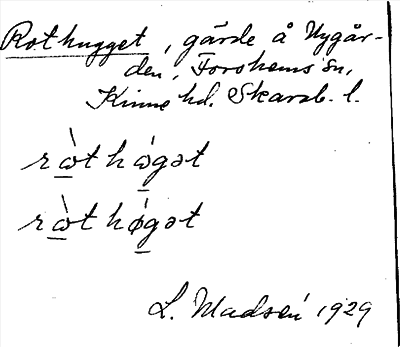 Rothugget, gärde å Nygår-
den, Forshems sn,
Kinne hd. Skarab. l.
rὼt hώgət
rὼt hǿgət
L. Madsén 1929